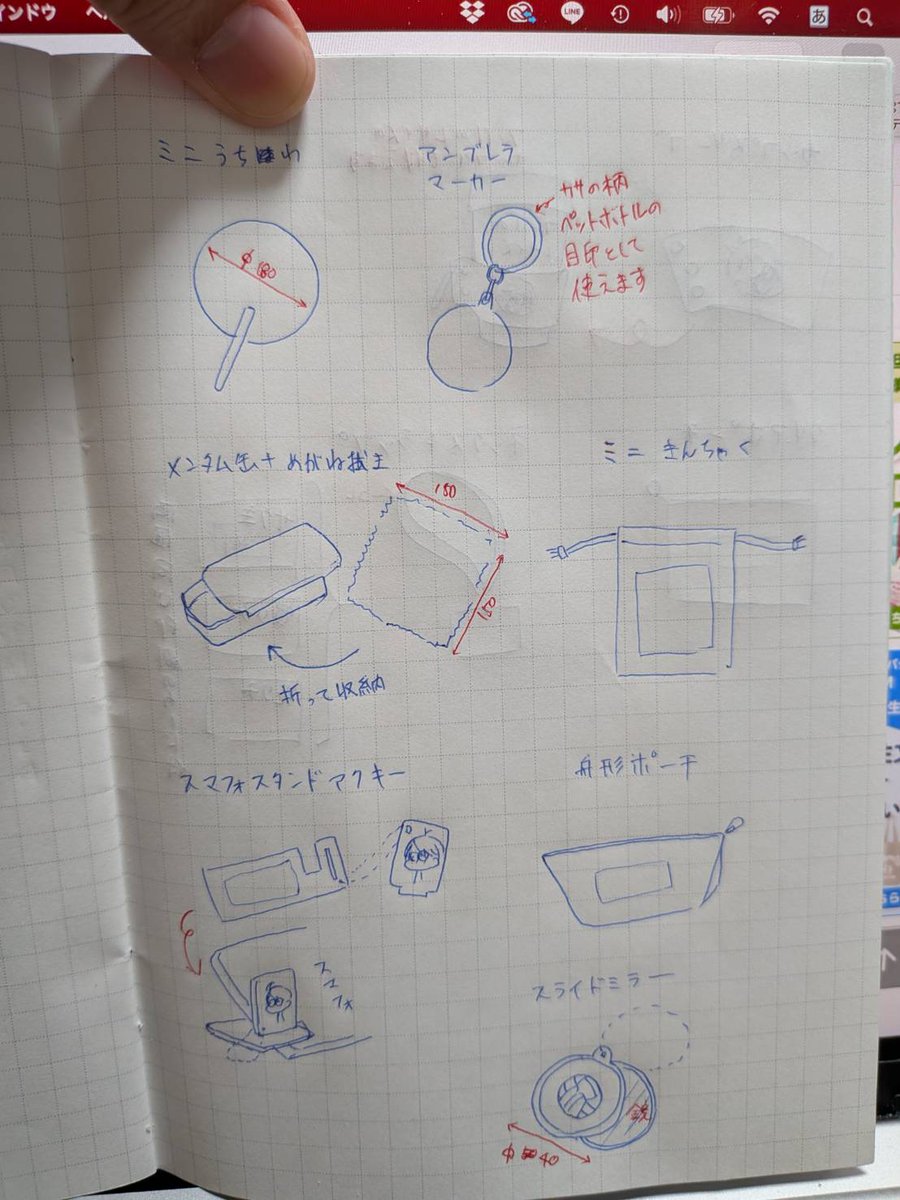 ミニうちわ
φ180
アンブレラ
マーカー
カサの柄
ペットボトルの
目印として
使えます
メンタム缶+めがね拭き
150
150
折って収納
ミニ きんちゃく
スマフォスタンドアクキー
スマフォ
舟形ポーチ
スライドミラー
鏡
φ40
インドウ
LINE
あ